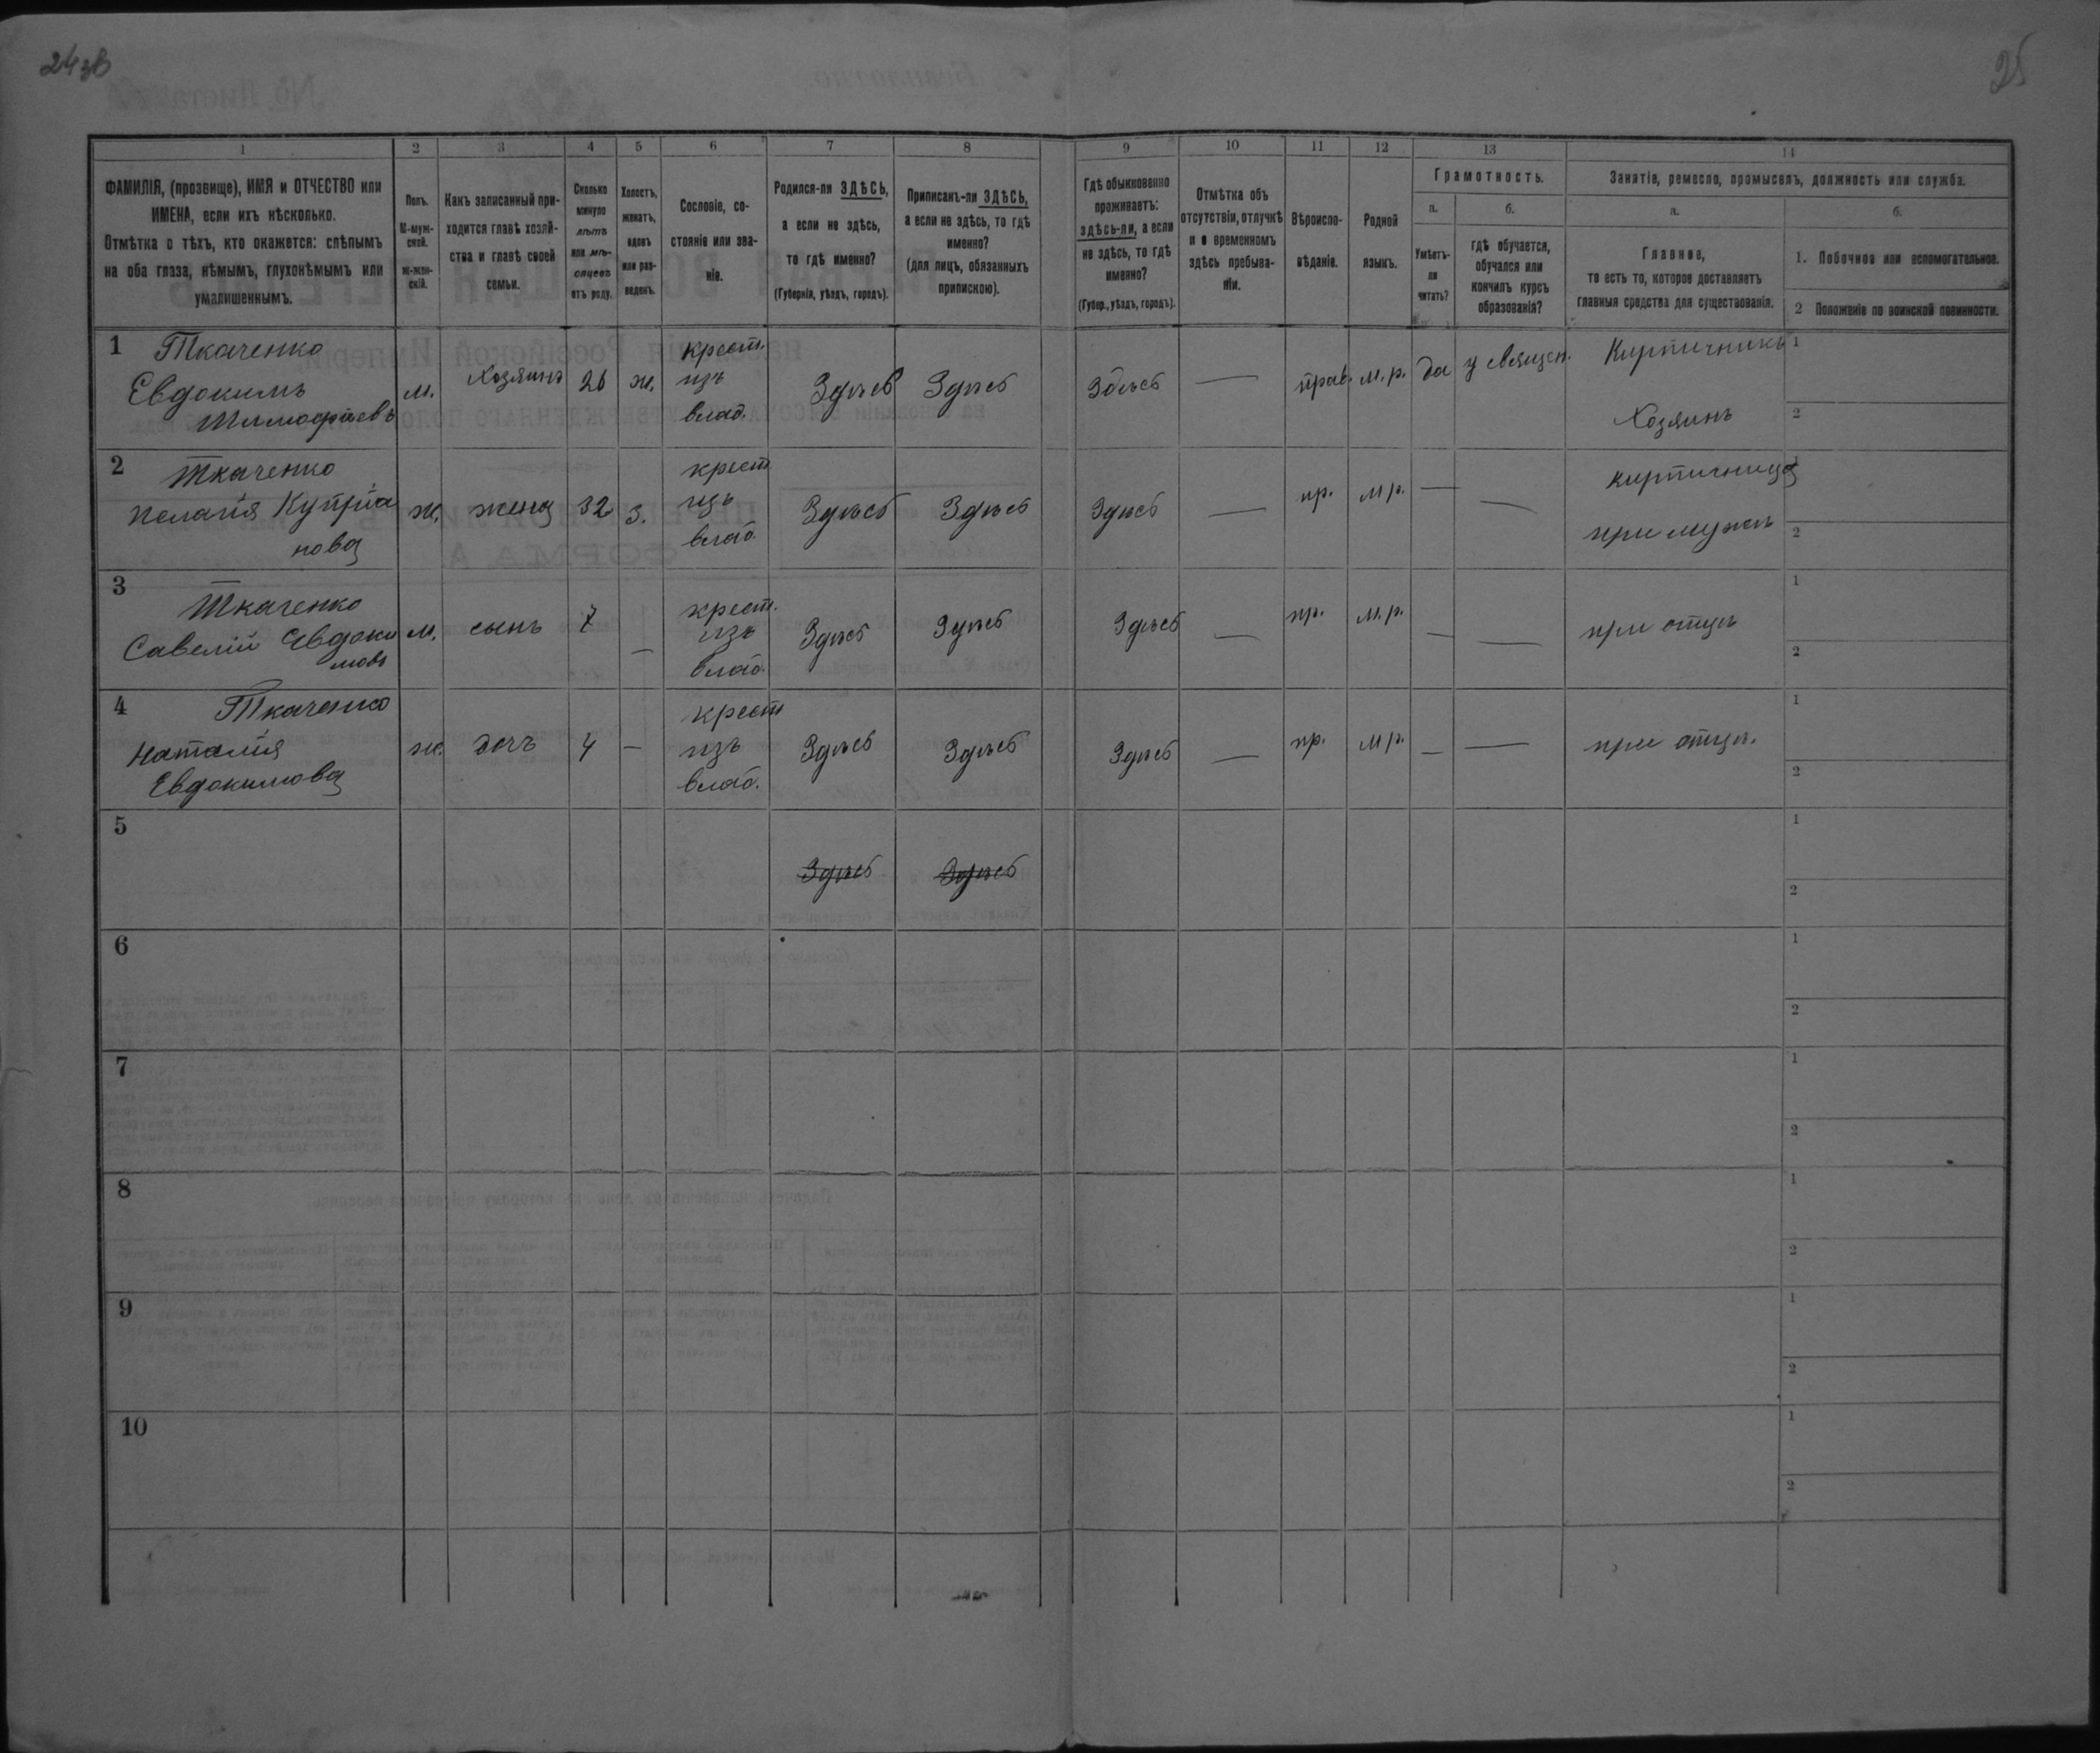 24 зв
25
1
2
3
4
5
6
7
8
9
10
11
12
13
14
ФАМИЛІЯ, (прозвище), ИМЯ и ОТЧЕСТВО или
ИМЕНА, если ихъ нѣсколько.
Отмѣтка о тѣхъ, кто окажется: слѣпымъ
на оба глаза, нѣмымъ, глухонѣмымъ или
умалишеннымъ.
Полъ.
М-муж-
ской.
ж-жен-
скій.
Какъ записанный при-
ходится главѣ хозяй-
ства и главѣ своей
семьи.
Сколько
минуло
лѣтъ
или мѣ-
сяцевъ
отъ роду.
Холостъ,
женатъ,
вдовъ
или раз-
веденъ.
Сословіе, со-
стояніе или зва-
ніе.
Родился-ли ЗДѢСЬ,
а если не здѣсь,
то гдѣ именно?
(Губернія, уѣздъ, городъ).
Приписанъ-ли ЗДѢСЬ,
а если не здѣсь, то гдѣ
именно?
(для лицъ, обязанныхъ
припискою).
Гдѣ обыкновенно
проживаетъ:
здѣсь-ли, а если
не здѣсь, то гдѣ
именно?
(Губер., уѣздъ, городъ).
Отмѣтка объ
отсутствіи, отлучкѣ
и о временномъ
здѣсь пребыва-
ніи.
Вѣроиспо-
вѣданіе.
Родной
языкъ.
Грамотность.
а.
б.
Умѣетъ-
ли
читать?
гдѣ обучается,
обучался или
кончилъ курсъ
образованія?
Занятіе, ремесло, промыселъ, должность или служба.
а.
б.
Главное,
то есть то, которое доставляетъ
главныя средства для существованія.
1. Побочное или вспомогательное.
2 Положеніе по воинской повинности.
1 Ткаченко
Евдокимъ
Тимофѣевъ
м.
Хозяинъ
26
ж.
крест.
изъ
влад.
Здѣсь
Здѣсь
Здѣсь
—
прав.
м.р.
да
у священ.
Кирпичникъ
Хозяинъ
1
2
2 Ткаченко
Пелагія Купрія
нова
ж.
жена
32
з.
крест
изъ
влад.
Здѣсь
Здѣсь
Здѣсь
—
пр.
м р.
—
—
кирпичница
при мужѣ
1
2
3
Ткаченко
Савелій Евдоки
мовъ
м.
сынъ
7
—
крест.
изъ
влад.
Здѣсь
Здѣсь
Здѣсь
—
пр.
м.р.
—
—
при отцѣ
1
2
4 Ткаченко
Наталія
Евдокимова
ж.
дочь
4
—
крест
изъ
влад.
Здѣсь
Здѣсь
Здѣсь
—
пр.
м р.
—
—
при отцѣ.
1
2
5
Здѣсь
Здѣсь
1
2
6
1
2
7
1
2
8
1
2
9
1
2
10
1
2